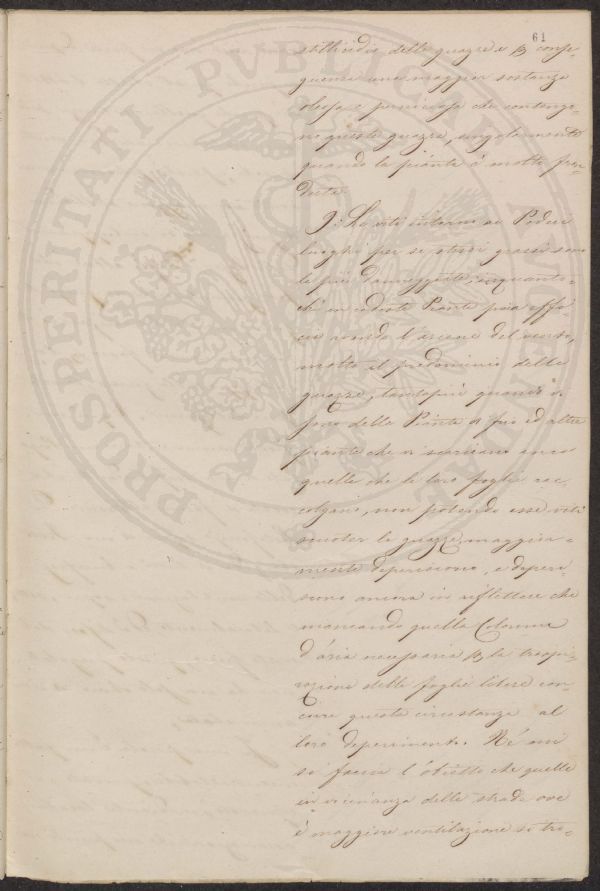 61
stillicidio delle guazze e p conse-
guenza una maggior sostanza
oleosa e perniciosa che contengo-
no queste guazze, singolarmente
quando la pianta è molto fron-
dosa.
Le viti intorno ai Poderi
luoghi per se stessi grassi sono
le più danneggiate, inquanto-
chè in codeste Piante poca effi-
cia avendo l'azione del vento,
molto il predominio delle
guazze, tantopiù quando vi
sono delle Piante a frutto ed altre
piante che vi scaricano anco
quelle che le loro foglie rac-
colgano, non potendo esse viti
scuoter le guazze, maggior-
mente deperiscono, e deperi-
scono ancora in riflettere che
mancando quella Colonna
d'aria necessaria p la traspi-
razione delle foglie libere con-
curre questa circostanza al
loro deperimento. Né mi
si faccia l'obietto che quelle
in vicinanza delle strade ove
è maggiore ventilazione si tro-
PROSPERITATI PVBLICAE AVGENDAE